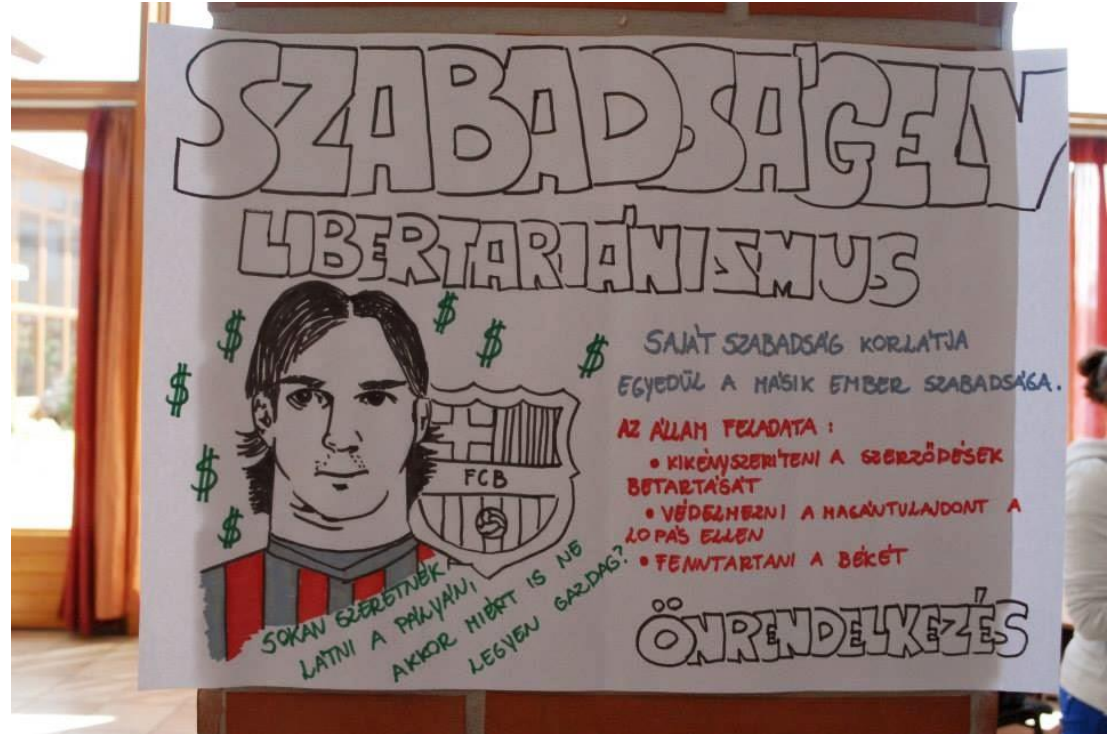 SZABADSÁGELV
LIBERTARIÁNIZMUS
$ $ $ $ $ $
SAJÁT SZABADSÁG KORLÁTJA
EGYEDÜL A MÁSIK EMBER SZABADSÁGA.
AZ ÁLLAM FELADATA :
• KIKÉNYSZERÍTENI A SZERZŐDÉSEK
BETARTÁSÁT
• VÉDELMEZNI A MAGÁNTULAJDONT A
LOPÁS ELLEN
• FENNTARTANI A BÉKÉT
FCB
SOKAN SZERETNÉK
LÁTNI A PÁLYÁN,
AKKOR MIÉRT IS NE
LEGYEN GAZDAG?
ÖNRENDELKEZÉS